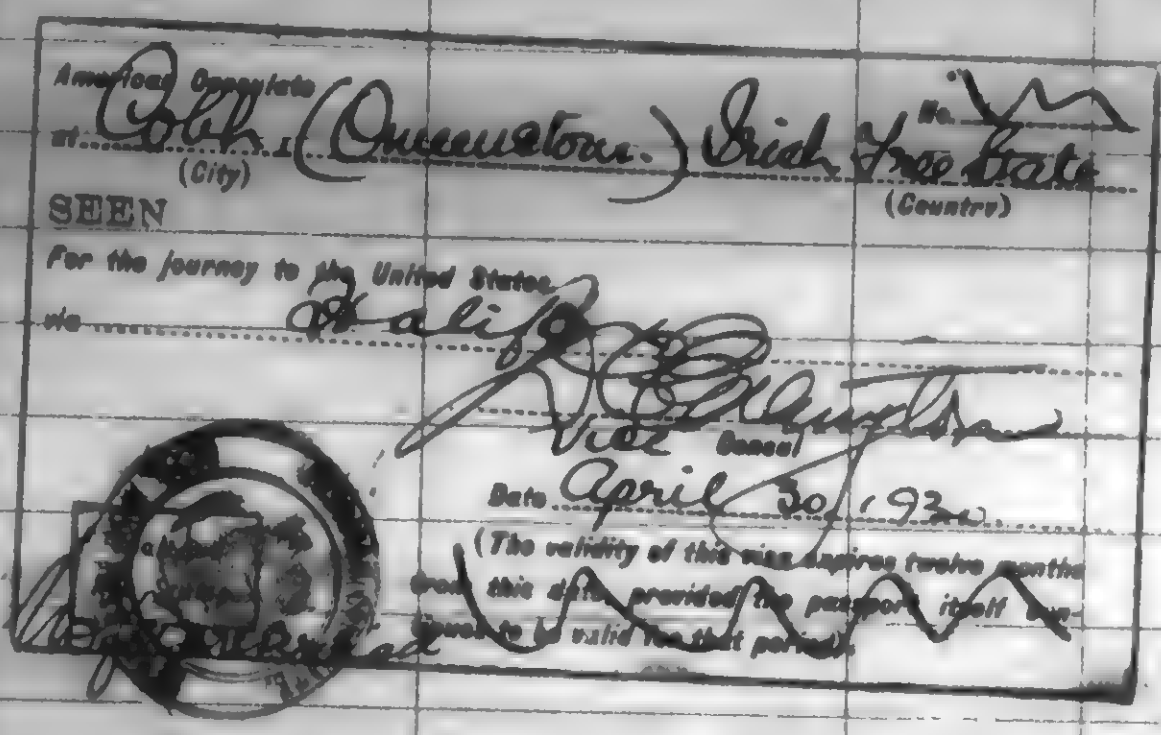 American Consulate
No.
at Cobh, (Queenstown.) Irish Free State
(City)
(Country)
SEEN
For the journey to the United States
via Halifax
Vice Consul
Date April 30, 193
(The validity of this visa expires twelve months
from this date, provided the passport itself con-
tinues to be valid for that period).